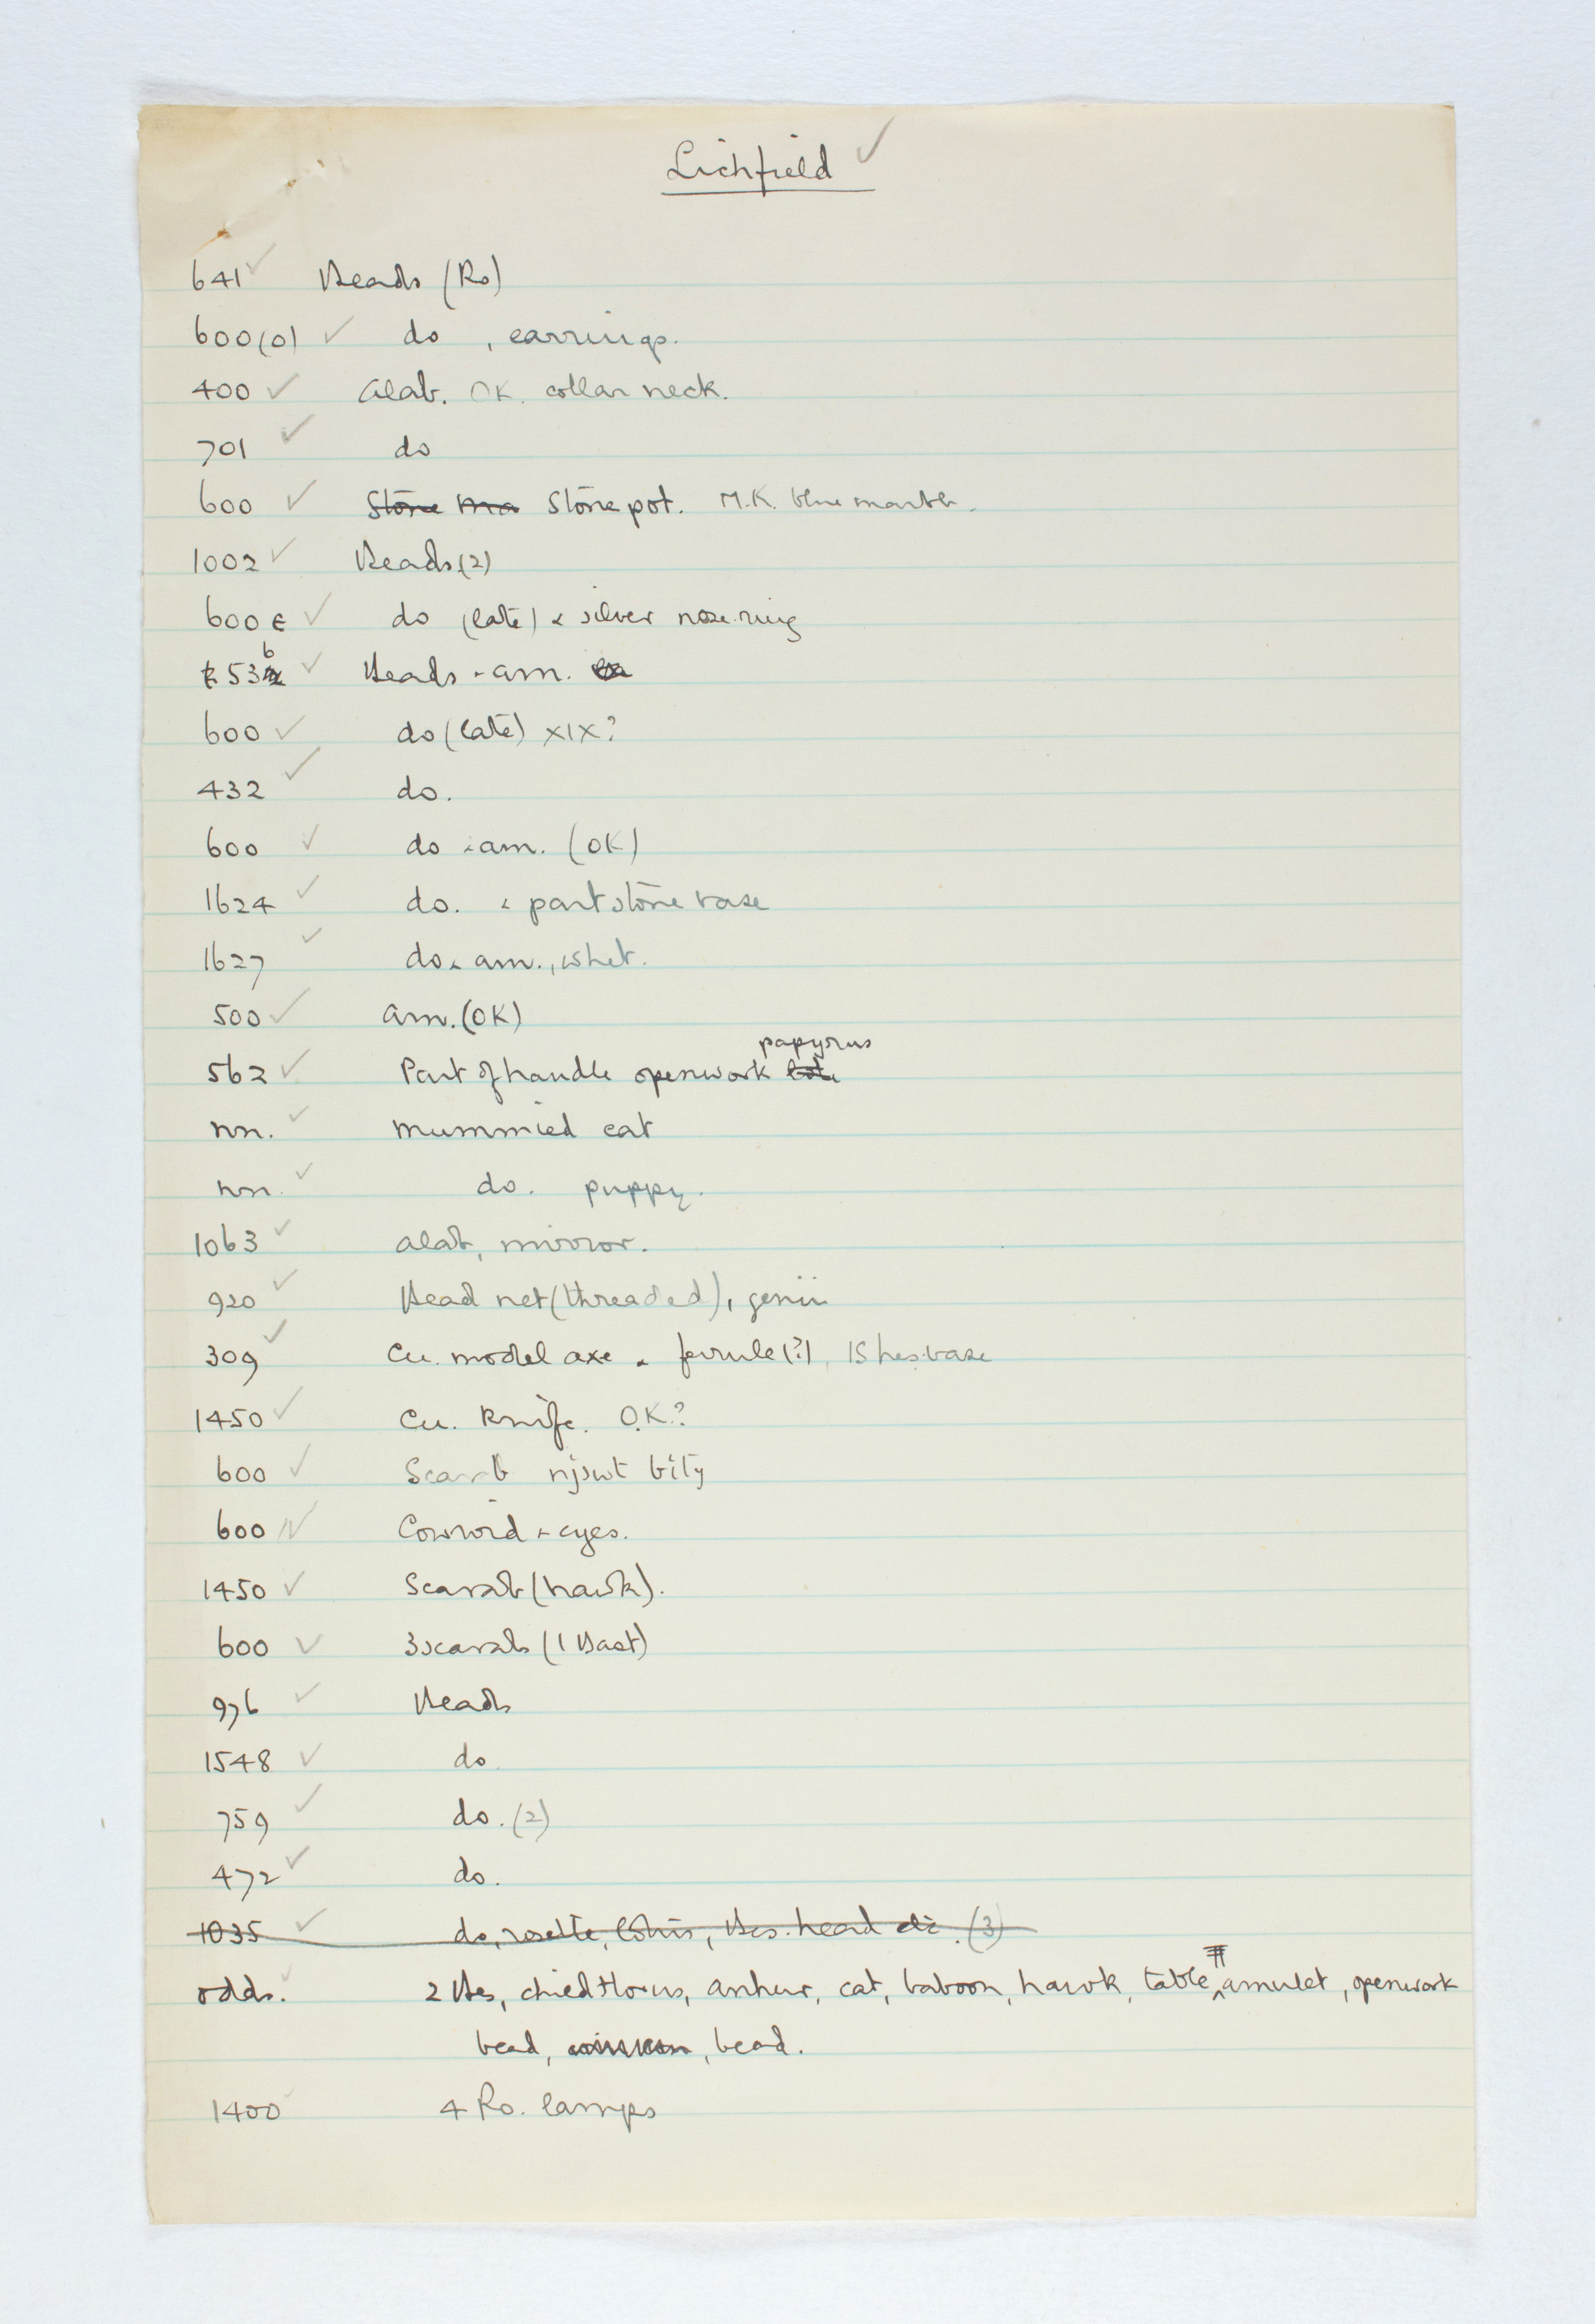 Lichfield ✓
641 ✓ Beads (Ro)
600(0) ✓ do , earrings.
400 ✓ Alab. OK. collar neck.
701 ✓ do
600 ✓ Stone Stone pot. M.K. blue marble.
1002 ✓ Beads (2)
600 E ✓ do (late) & silver nose-ring
E 53 b ✓ Beads & am.
600 ✓ do (late) XIX?
432 ✓ do.
600 ✓ do & am. (OK)
1624 ✓ do. & part stone vase
1627 ✓ do & am., whet.
500 ✓ am. (OK)
papyrus
562 ✓ Part of handle openwork
nn. ✓ mummied cat
nn. ✓ do. puppy.
1063 ✓ alab, mirror.
920 ✓ Bead net (threaded), genii
309 ✓ Cu. model axe & ferrule (?), 15 hes-vase
1450 ✓ Cu. knife. O.K.?
600 ✓ Scarab njswt bity
600 ✓ Cowroid & eyes.
1450 ✓ Scarab (hawk).
600 ✓ 3 scarabs (1 Bast)
976 ✓ Beads
1548 ✓ do
759 ✓ do. (2)
472 ✓ do.
1035 ✓ do, rosette, Bes-head etc. (3)
odds. ✓ 2 Bes, child Horus, Anhur, cat, baboon, hawk, table amulet, openwork
bead, bead.
1400 ✓ 4 Ro. lamps